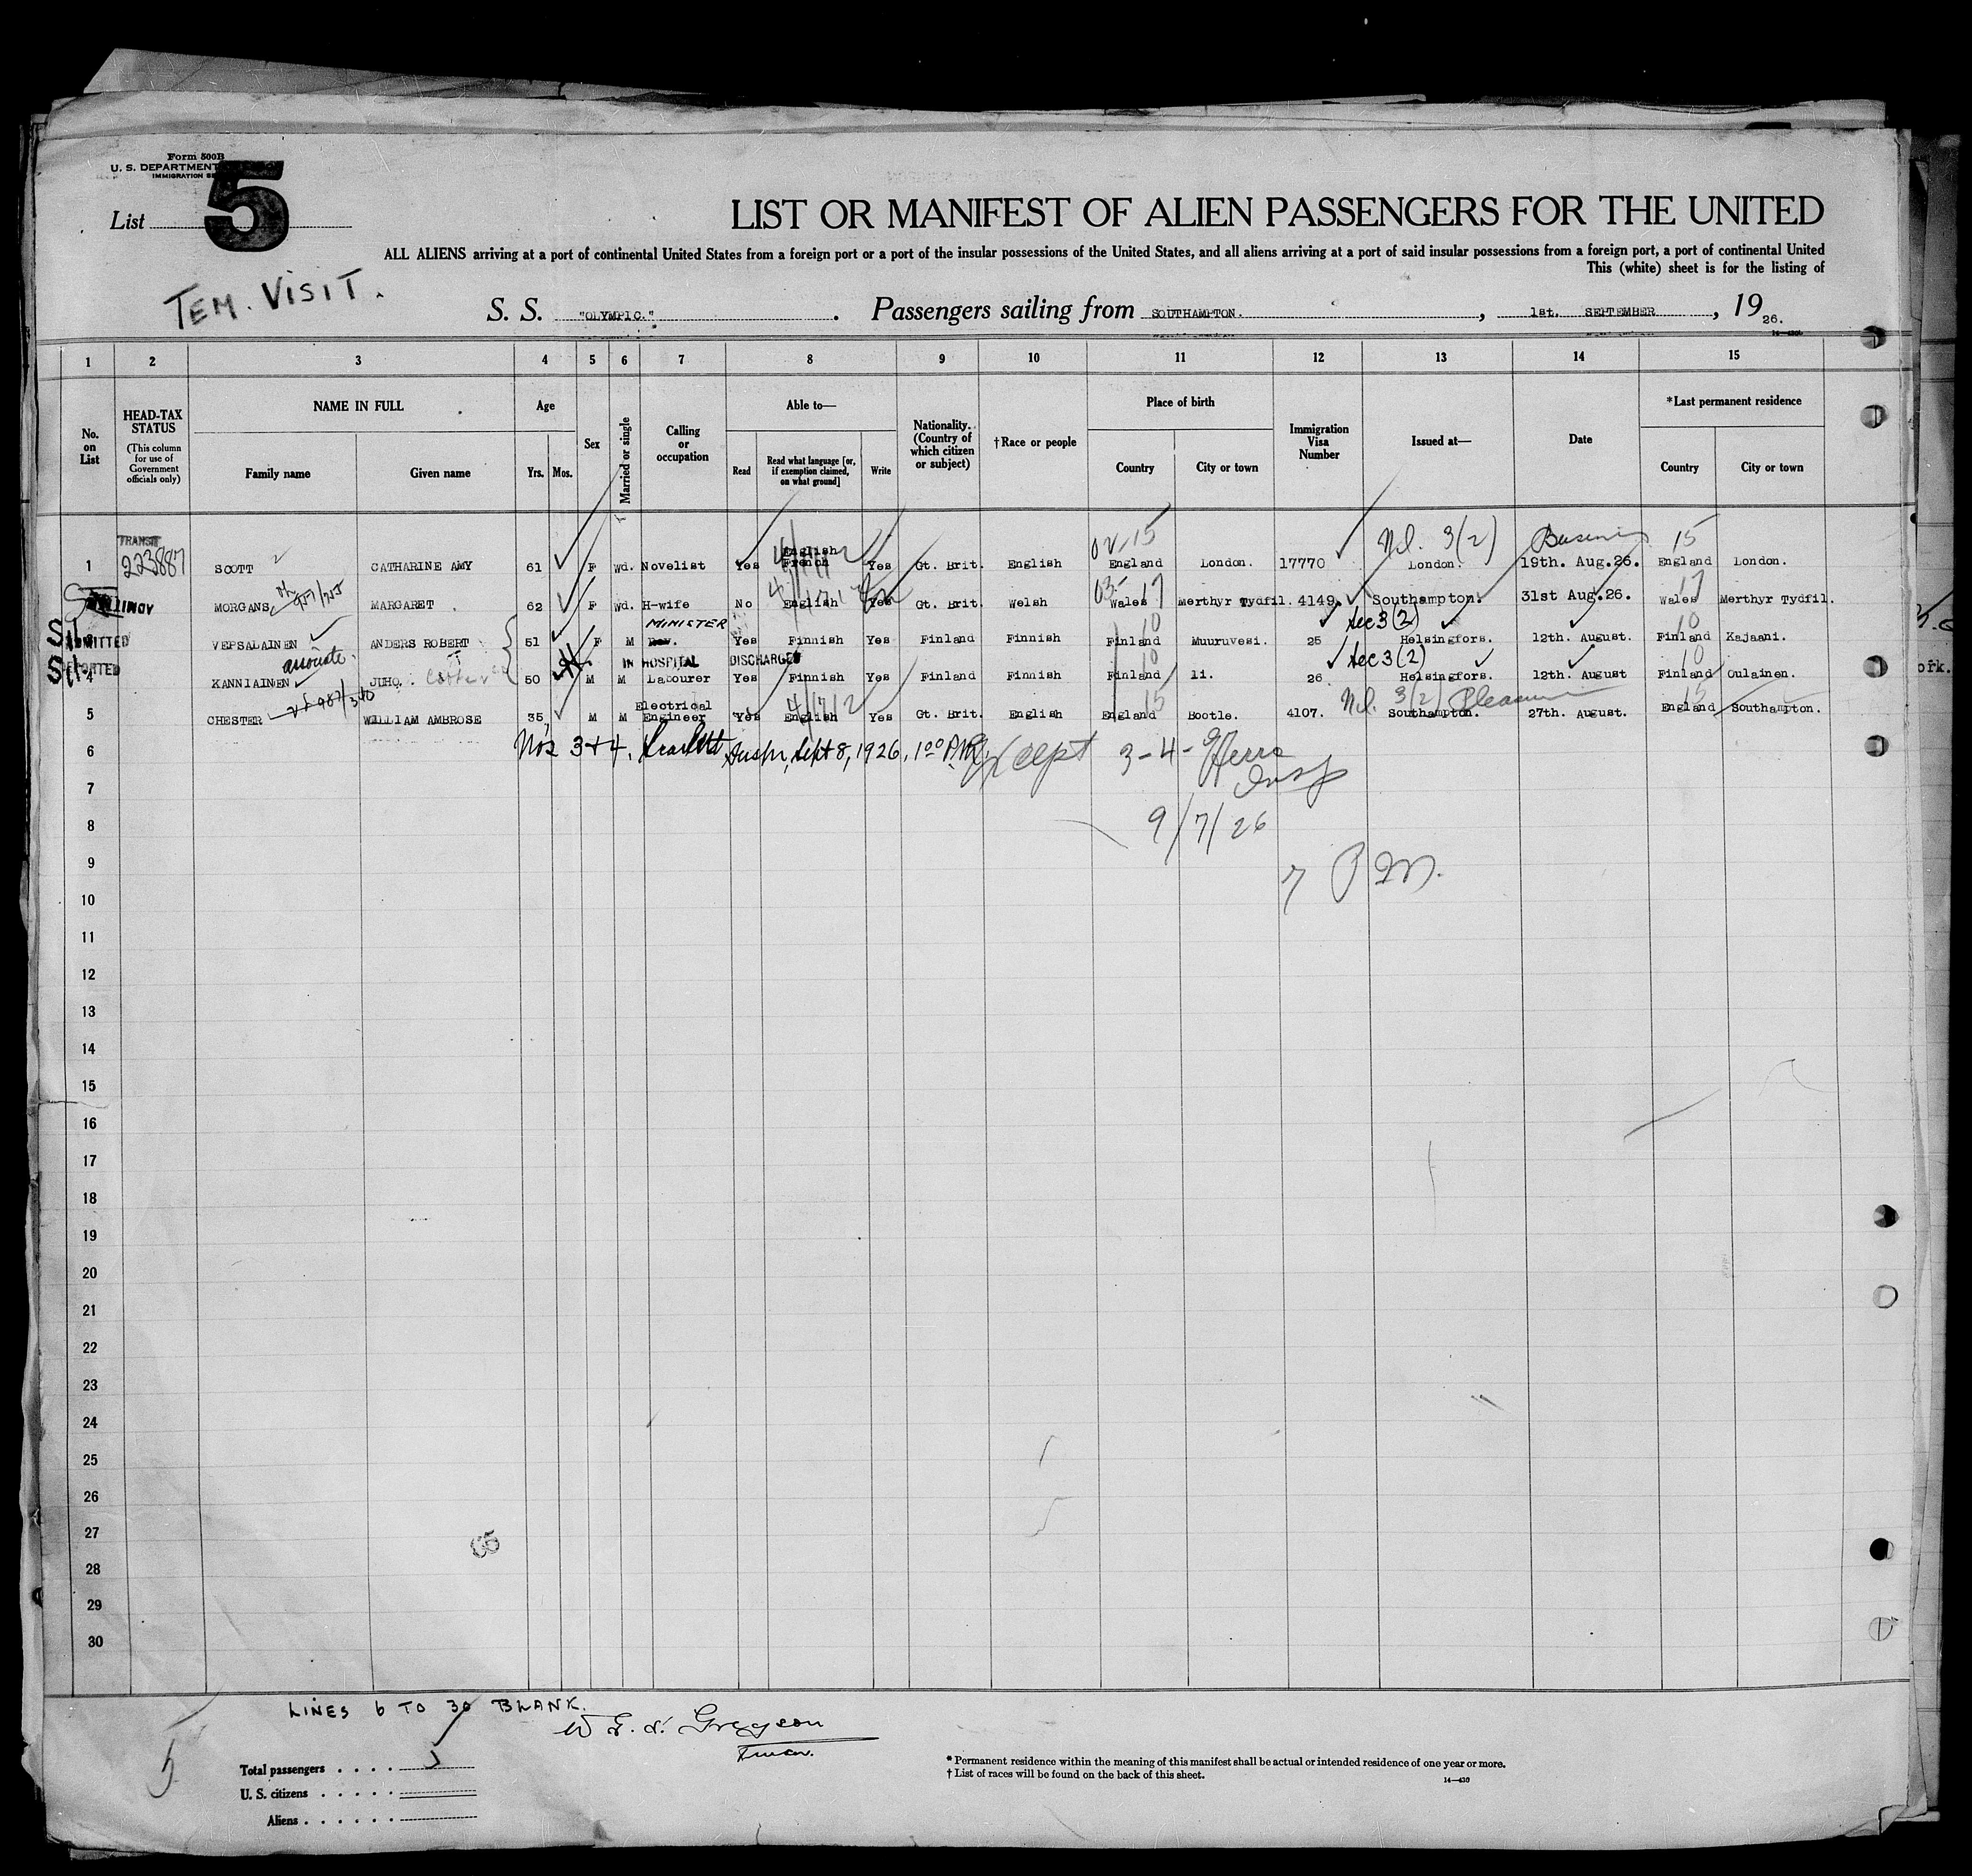 Form 500B
U. S. DEPARTMENT
IMMIGRATION SE
List 5
LIST OR MANIFEST OF ALIEN PASSENGERS FOR THE UNITED
ALL ALIENS arriving at a port of continental United States from a foreign port or a port of the insular possessions of the United States, and all aliens arriving at a port of said insular possessions from a foreign port, a port of continental United
This (white) sheet is for the listing of
TEM. VISIT.
S. S. "OLYMPIC." . Passengers sailing from SOUTHAMPTON. , 1st. SEPTEMBER , 19 26.
1 2 3 4 5 6 7 8 9 10 11 12 13 14 15
No. on List
HEAD-TAX STATUS (This column for use of Government officials only)
NAME IN FULL
Family name Given name
Age
Yrs. Mos.
Sex
Married or single
Calling or occupation
Able to—
Read Read what language [or, if exemption claimed, on what ground] Write
Nationality. (Country of which citizen or subject)
†Race or people
Place of birth
Country City or town
Immigration Visa Number
Issued at—
Date
*Last permanent residence
Country City or town
TRANSIT
223887
1 SCOTT CATHARINE AMY 61 F Wd. Novelist Yes English French Yes Gt. Brit. English England London. 17770 London. 19th. Aug.26. England London.
3(2) 15
MORGANS MARGARET 62 F Wd. H-wife No English Yes Gt. Brit. Welsh Wales Merthyr Tydfil. 4149. Southampton. 31st Aug.26. Wales Merthyr Tydfil.
ADMITTED VEPSALAINEN ANDERS ROBERT 51 F M MINISTER Rev. Yes Finnish Yes Finland Finnish Finland Muuruvesi. 25 Sec 3(2) Helsingfors. 12th. August. Finland Kajaani.
IN HOSPITAL DISCHARGED
4 KANNIAINEN JUHO. 50 M M Labourer Yes Finnish Yes Finland Finnish Finland Ii. 26 Sec 3(2) Helsingfors. 12th August Finland Oulainen.
5 CHESTER WILLIAM AMBROSE 35 M M Electrical Engineer Yes English Yes Gt. Brit. English England Bootle. 4107. Southampton. 27th. August. England Southampton.
3(2) Pleasure
6 Nos 3+4. Sept 8, 1926, 1:00 P.M. Except 3-4-
Insp
7
8 9/7/26
9 7 PM.
10
11
12
13
14
15
16
17
18
19
20
21
22
23
24
25
26
27
28
29
30
LINES 6 TO 30 BLANK.
Total passengers
U. S. citizens
Aliens
* Permanent residence within the meaning of this manifest shall be actual or intended residence of one year or more.
† List of races will be found on the back of this sheet.
14—430